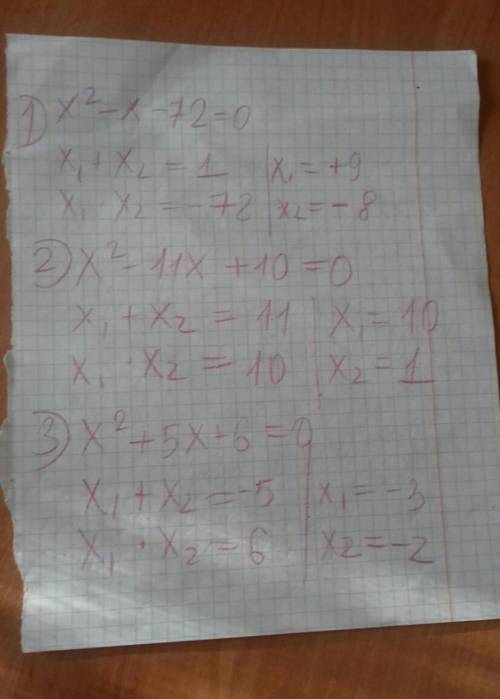 1) x² - x - 72 = 0
x₁ + x₂ = 1 | x₁ = +9
x₁ · x₂ = -72 | x₂ = -8
2) x² - 11x + 10 = 0
x₁ + x₂ = 11 | x₁ = 10
x₁ · x₂ = 10 | x₂ = 1
3) x² + 5x + 6 = 0
x₁ + x₂ = -5 | x₁ = -3
x₁ · x₂ = 6 | x₂ = -2